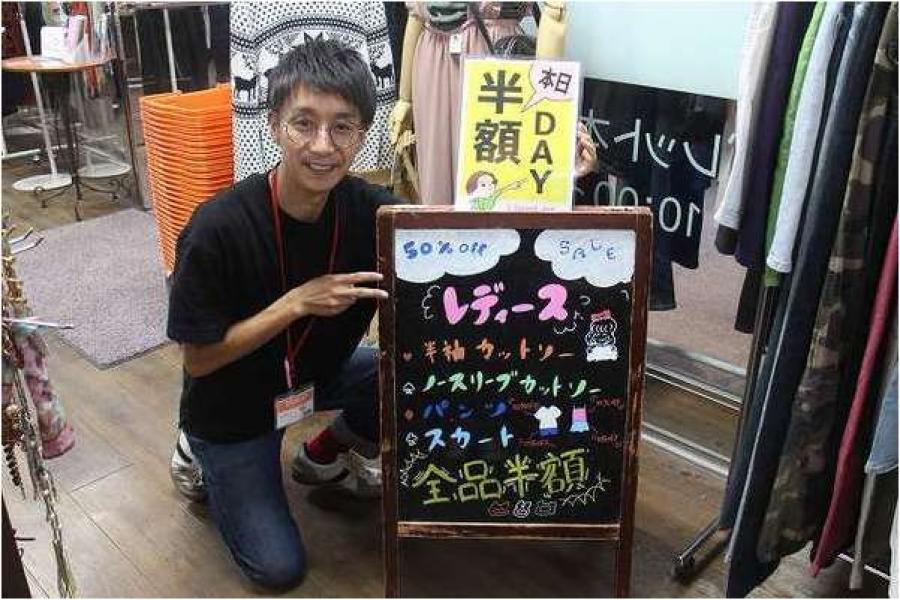 本日
半額
DAY
50% off
SALE
レディース
半袖カットソー
ノースリーブカットソー
パンツ
スカート
全品半額
レット
10:00